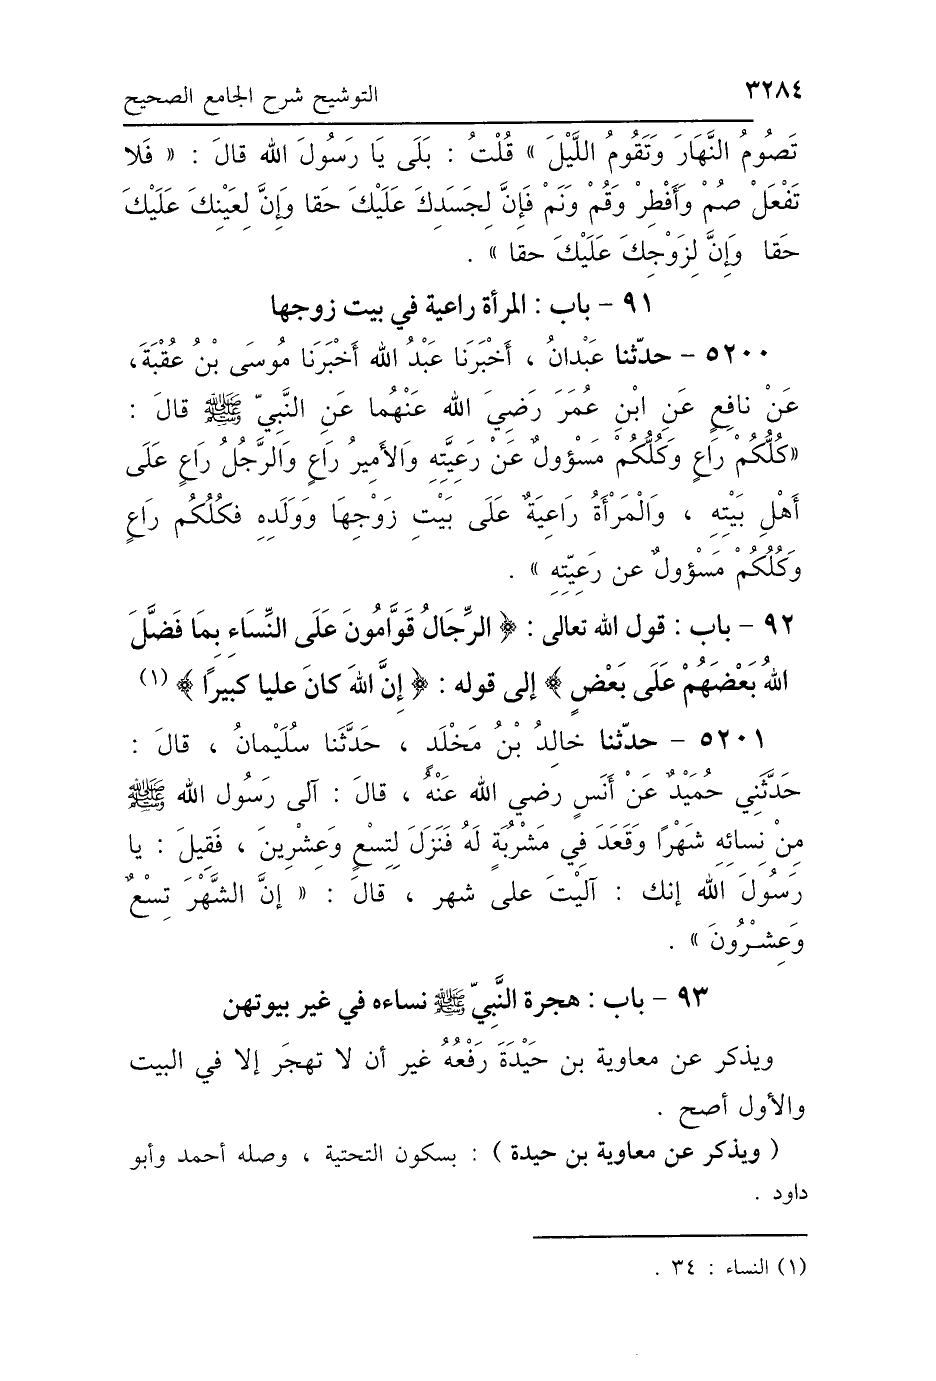 ٣٢٨٤ التوشيح شرح الجامع الصحيح
تَصُومُ النَّهَارَ وَتَقُومُ اللَّيْلَ » قُلْتُ : بَلَى يَا رَسُولَ الله قالَ : « فَلا
تَفْعَلْ صُمْ وَأَفْطِرْ وَقُمْ وَنَمْ فَإِنَّ لِجَسَدِكَ عَلَيْكَ حَقا وَإِنَّ لِعَيْنِكَ عَلَيْكَ
حَقا وَإِنَّ لِزَوْجِكَ عَلَيْكَ حقا » .
٩١ – باب : المرأة راعية في بيت زوجها
٥٢٠٠ – حدّثنا عَبْدانُ ، أَخْبَرَنا عَبْدُ الله أَخْبَرَنا مُوسَى بْنُ عُقْبَةَ،
عَنْ نافِعٍ عَنِ ابْنِ عُمَرَ رَضِيَ الله عَنْهُما عَنِ النَّبِيّ ﷺ قالَ :
«كُلُّكُمْ رَاعٍ وَكُلُّكُمْ مَسْؤولٌ عَنْ رَعِيَّتِهِ وَالأمِيرُ رَاعٍ وَالرَّجُلُ رَاعٍ عَلَى
أَهْلِ بَيْتِهِ ، وَالْمَرْأَةُ رَاعِيَةٌ عَلَى بَيْتِ زَوْجِهَا وَوَلَدِهِ فَكُلُكُم رَاعٍ
وَكُلُكُمْ مَسْؤولٌ عن رَعِيّتِهِ » .
٩٢ – باب : قول الله تعالى : ﴿ الرِّجَالُ قَوَّامُونَ عَلَى النِّسَاءِ بِمَا فَضَّلَ
اللهُ بَعْضَهُمْ عَلَى بَعْضٍ ﴾ إلى قوله : ﴿ إِنَّ اللهَ كانَ عليا كبيرًا ﴾ (١)
٥٢٠١ – حدّثنا خالِدُ بْنُ مَخْلَد ، حَدَّثَنا سُلَيْمانُ ، قالَ :
حَدَّثَنِي حُمَيْدٌ عَنْ أَنَسٍ رضي الله عَنْهُ ، قالَ : آلى رَسُول الله ﷺ
مِنْ نِسائِهِ شَهْرًا وَقَعَدَ فِي مَشْرُبَةٍ لَهُ فَنَزَلَ لِتِسْعٍ وَعِشْرِينَ ، فَقِيلَ : يا
رَسُولَ الله إنك : آلَيْتَ على شهر ، قالَ : « إنَّ الشَّهْرَ تِسْعٌ
وَعِشْرُونَ » .
٩٣ – باب : هجرة النَّبِيّ ﷺ نساءه في غير بيوتهن
ويذكر عن معاوية بن حَيْدَةَ رَفْعُهُ غير أن لا تهجَر إلا في البيت
والأول أصح .
( ويذكر عن معاوية بن حيدة ) : بسكون التحتية ، وصله أحمد وأبو
داود .
(١) النساء : ٣٤ .